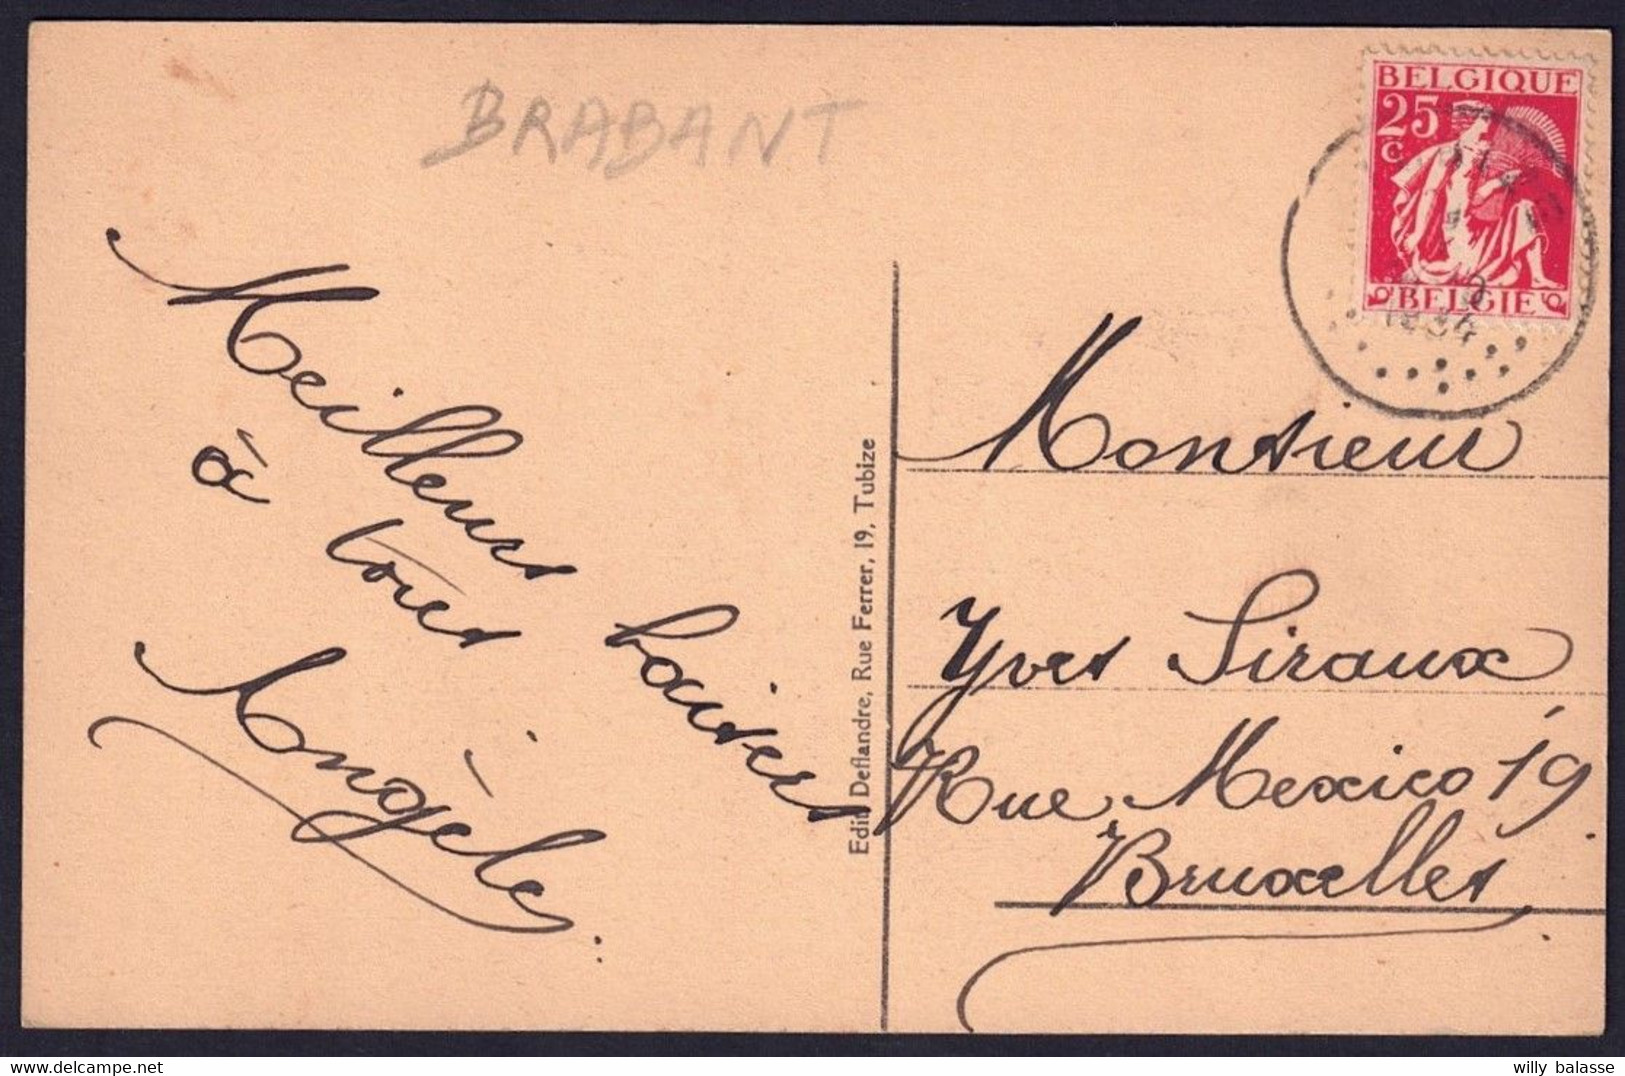 BRABANT
BELGIQUE
25
C
BELGIE
1934
Meilleurs baisers
à tous
Angèle
Edit. Deflandre, Rue Ferrer, 19, Tubize
Monsieur
Yves Siraux
Rue Mexico 19
Bruxelles
willy balasse